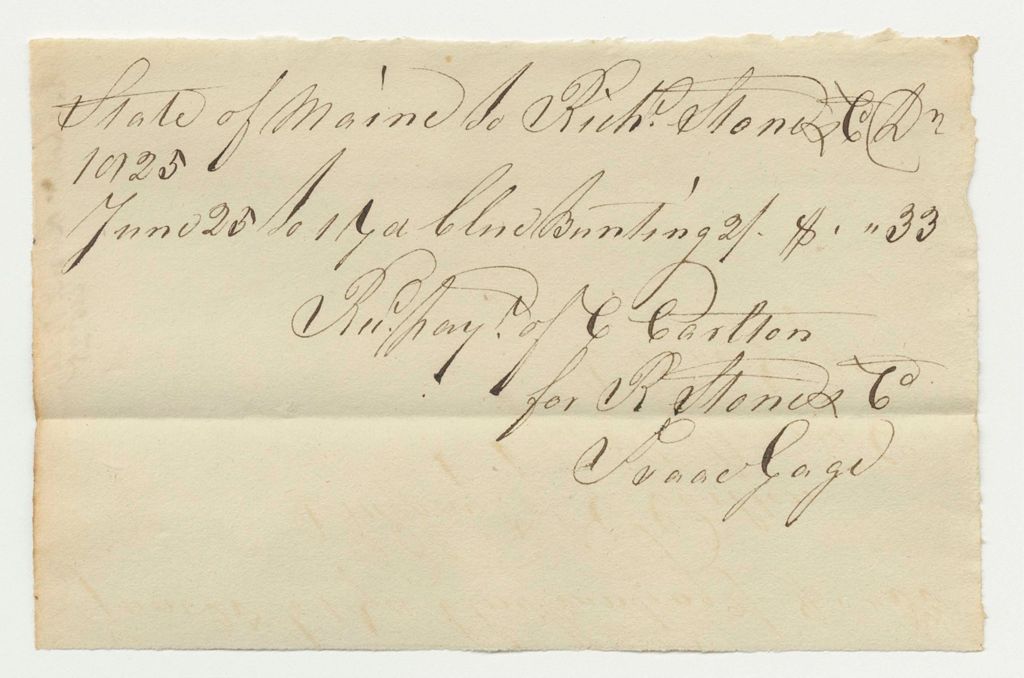 State of Maine to Richd. Stone & Co Dr
1825
June 25 to 1 yd blue Bunting 2/. $. " 33
Recd. payt. of C Carlton
for R Stone & Co
Isaac Gage